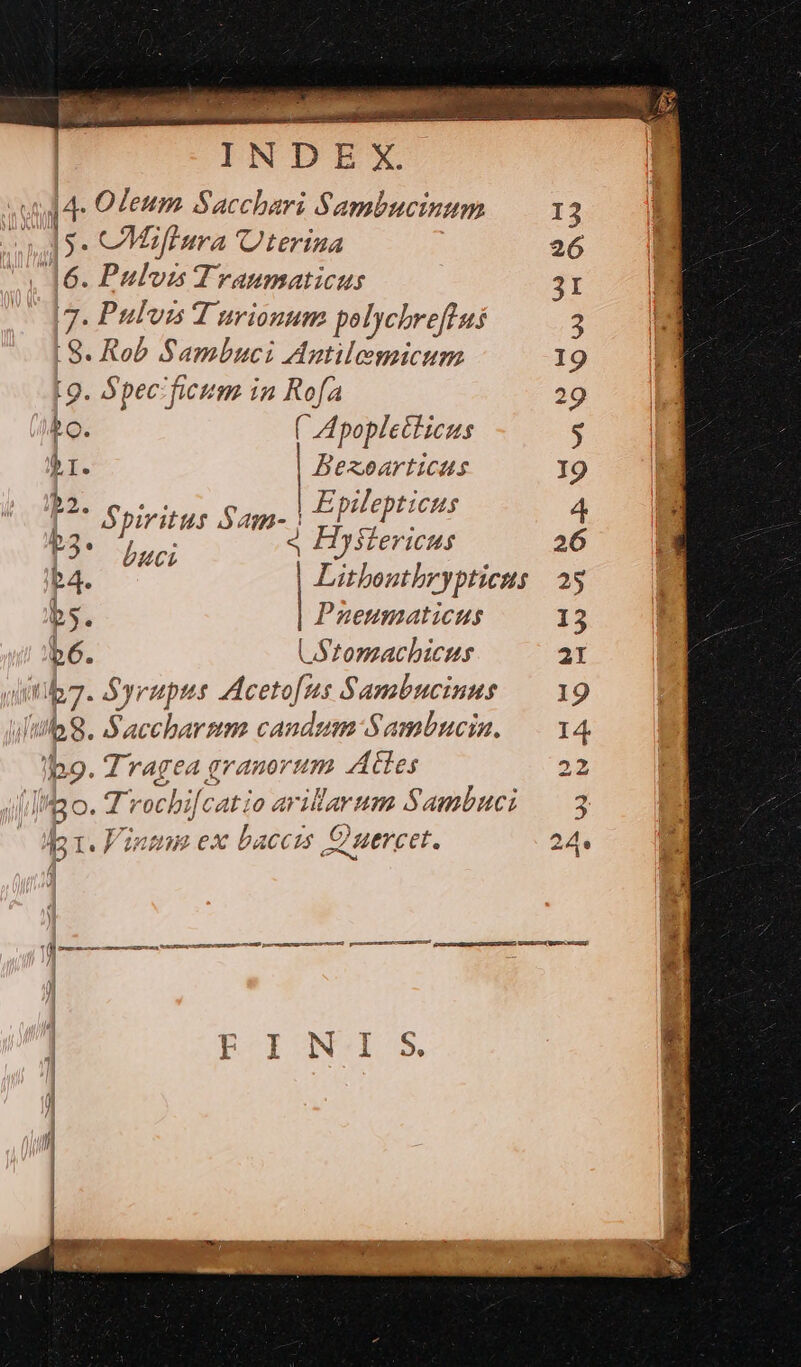 INDEX.
4. Oleum Sacchari Sambucinum 13
5. Miſtura Uterina 26
6. Pulvis Traumaticus 31
7. Pulvis Turionum polychreſtus 3
18. Rob Sambuci Antilœmicum 19
19. Spec ficum in Roſa 29
0. ( Apoplecticus 5
1. Bezoarticus 19
2. Spiritus Sam- Epilepticus 4
3. buci Hystericus 26
4. Lithonthrypticus 25
5. Pneumaticus 13
6. Stomachicus 21
7. Syrupus Acetoſus Sambucinus 19
8. Saccharum candum Sambucin. 14
9. Tragea granorum Actes 22
0. Trochiſcatio arillarum Sambuci 3
1. Vinum ex baccis Quercet. 24.
FINIS.